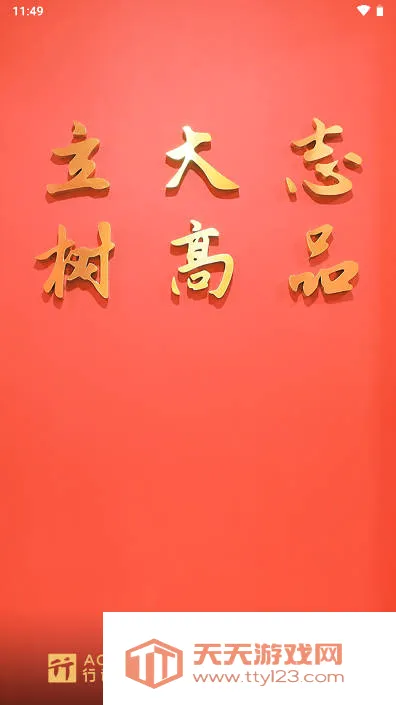 11:49
立大志
树高品
天天游戏网
www.tty123.com